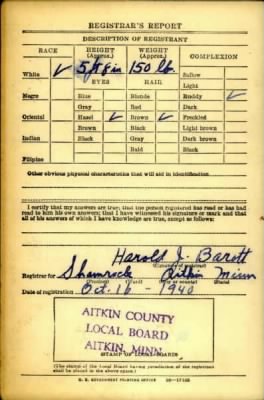 REGISTRAR'S REPORT
DESCRIPTION OF REGISTRANT
RACE HEIGHT (Approx.) WEIGHT (Approx.) COMPLEXION
White ✓ 5 ft 8 in 150 lb. Sallow
EYES HAIR Light
Negro Blue Blonde Ruddy ✓
Gray Red Dark
Oriental Hazel ✓ Brown ✓ Freckled
Brown Black Light brown
Indian Black Gray Dark brown
Bald Black
Filipino
Other obvious physical characteristics that will aid in identification
I certify that my answers are true; that the person registered has read or has had
read to him his own answers; that I have witnessed his signature or mark and that
all of his answers of which I have knowledge are true, except as follows:
Harold J. Barott
(Signature of registrar)
Registrar for Shamrock Aitkin Minn
(Precinct) (Ward) (City or county) (State)
Date of registration Oct. 16 1940
AITKIN COUNTY
LOCAL BOARD
AITKIN, MINN.
STAMP OF LOCAL BOARD
(The stamp of the Local Board having jurisdiction of the registrant
shall be placed in the above space.)
U. S. GOVERNMENT PRINTING OFFICE